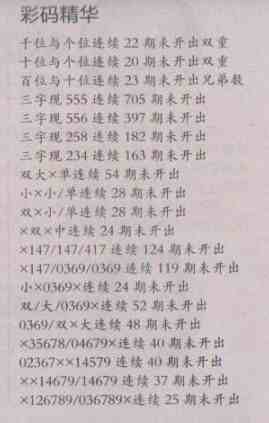 彩码精华
千位与个位连续 22 期未开出双重
十位与个位连续 20 期未开出双重
百位与十位连续 23 期未开出兄弟数
三字现 555 连续 705 期未开出
三字现 556 连续 397 期未开出
三字现 258 连续 182 期未开出
三字现 234 连续 163 期未开出
双大×单连续 54 期未开出
小×小/单连续 28 期未开出
双×小/单连续 28 期未开出
×双×中连续 24 期未开出
×147/147/417 连续 124 期未开出
×147/0369/0369 连续 119 期未开出
小×0369×连续 24 期未开出
双/大/0369×连续 52 期未开出
0369/双×大连续 48 期未开出
×35678/04679×连续 40 期未开出
02367××14579 连续 40 期未开出
××14679/14679 连续 37 期未开出
×126789/036789×连续 25 期未开出